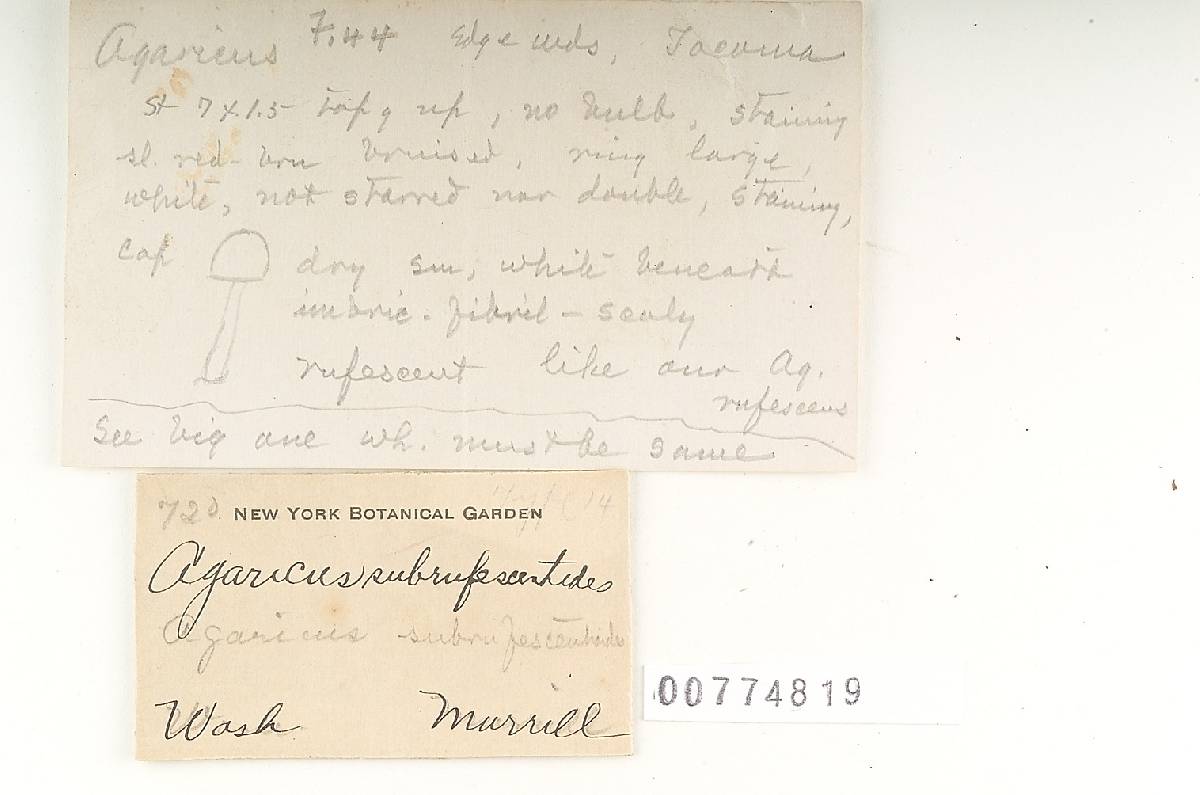 Agaricus 7.44 Edge wds, Tacoma
St 7x1.5 top g up, no bulb, staining
sl. red-brn bruised, ring large,
white, not starred nor double, staining,
cap dry sm, white beneath
imbric. fibril - scaly
rufescent like our Ag.
rufescens
See big one wh. must be same
720 NEW YORK BOTANICAL GARDEN
Agaricus subrufescentides
Agaricus subrufescentoides
Wash Murrill
00774819